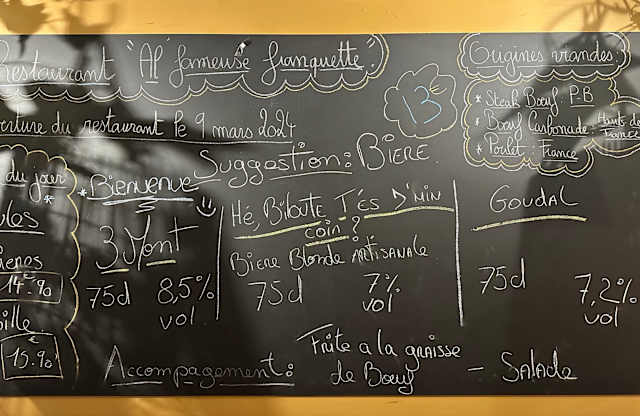 Restaurant "Al' fameuse franquette"
Origines viandes:
* Steak Bœuf: P-B
* Bœuf Carbonade: Hauts de France
* Poulet: France
13€
erture du restaurant le 9 mars 2024
Suggestion: Bière.
du jour
* Bienvenue *
3 Mont
75cl 8,5% vol.
Hé, Biloute T'és D'min
coin?
Biere Blonde Artisanale
75cl 7% vol
Goudal
75cl 7,2% vol
14€90
15.€90
Accompagnement: Frite a la graisse
de Bœuf - Salade